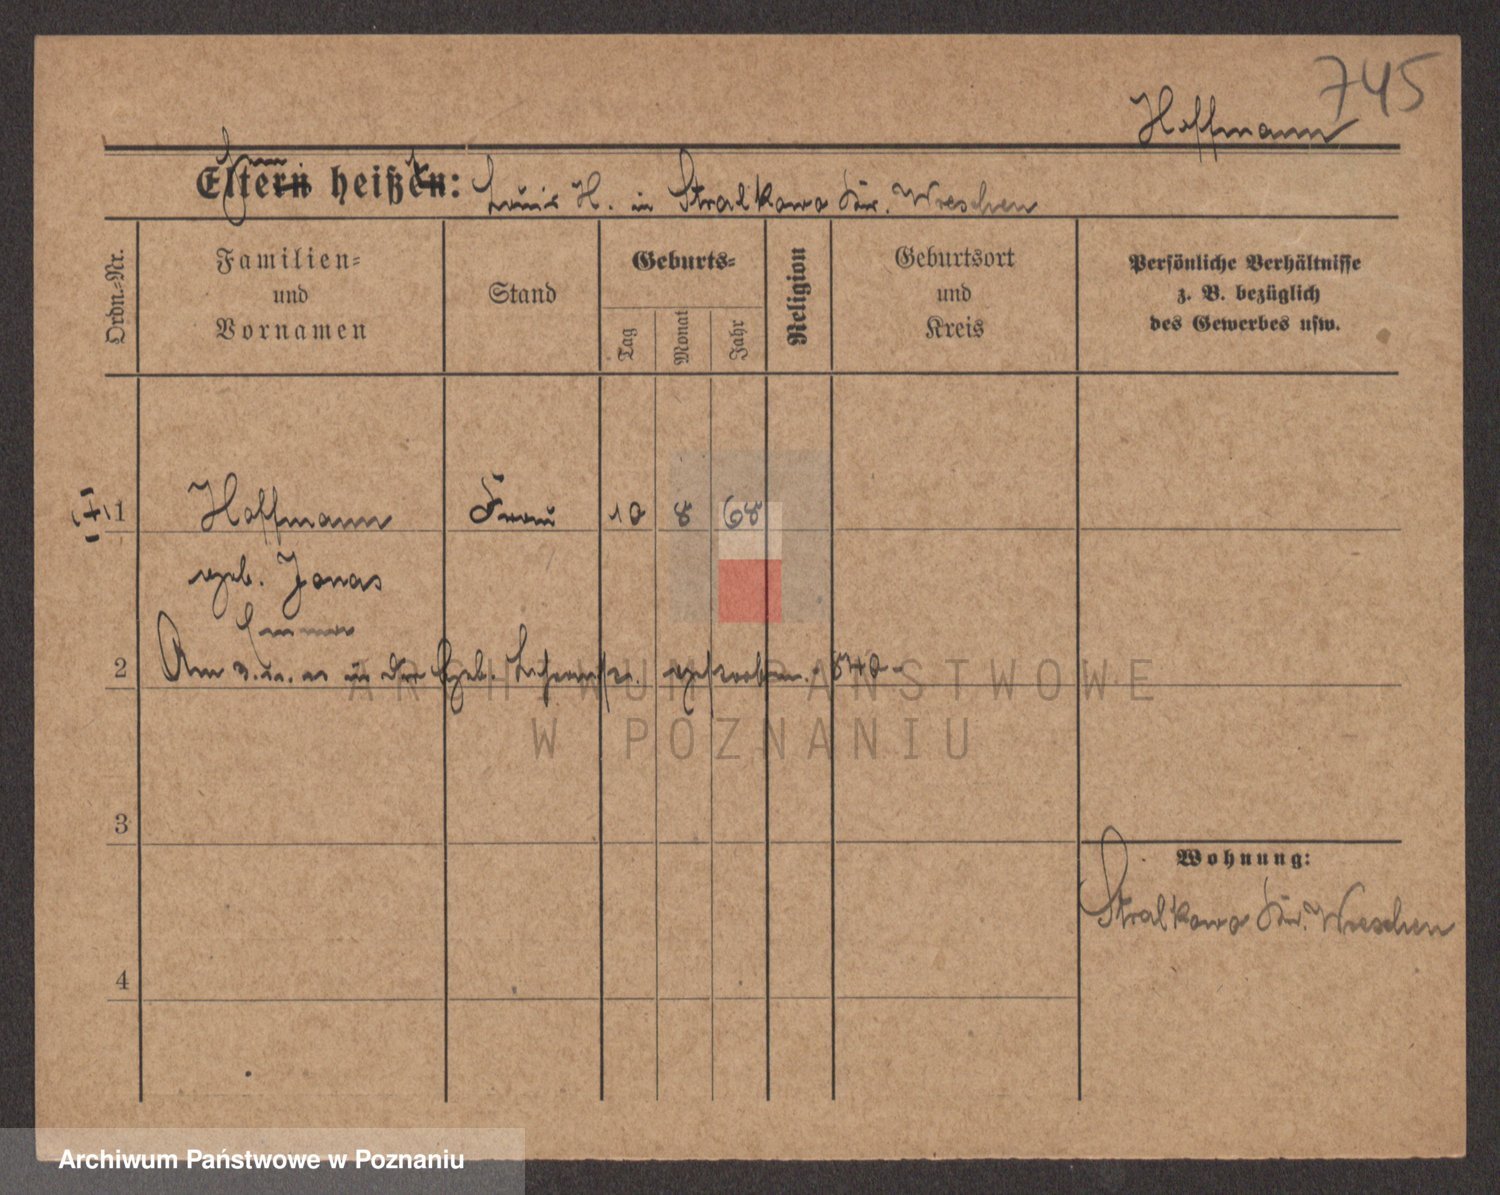 745
Hoffmann
Eltern heißen: Louis H. in Stralkowo Kr. Wreschen
Ordn.-Nr.
Familien-
und
Vornamen
Stand
Geburts-
Tag
Monat
Jahr
Religion
Geburtsort
und
Kreis
Persönliche Verhältnisse
z. B. bezüglich
des Gewerbes usw.
(+) 1 Hoffmann Frau 10 8 68
geb. Jonas
Emma
2 Am in der gestorben.
ARCHIWUM PAŃSTWOWE
W POZNANIU
3
Wohnung:
Stralkowo Kr. Wreschen
4
Archiwum Państwowe w Poznaniu